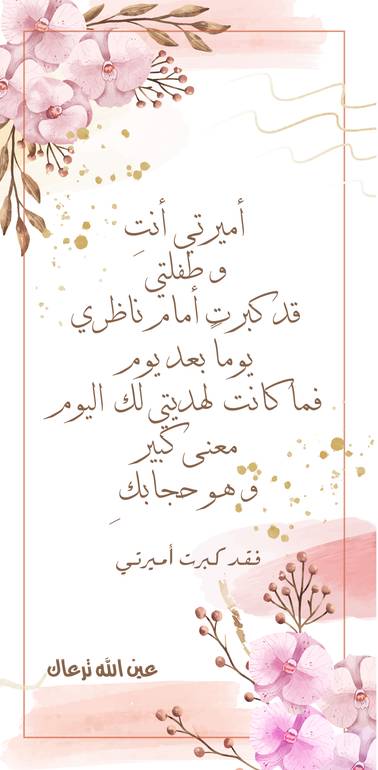 أميرتي أنتِ
و طفلتي
قد كبرتِ أمام ناظري
يوماً بعد يوم
فما كانت لهديتي لك اليوم
معنى كبير
و هو حجابكِ
فقد كبرت أميرتي
عين الله ترعاك